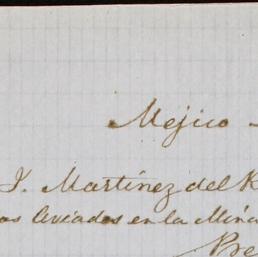 Mejico
J. Martinez del R
os Aviados en la Mina
Pre